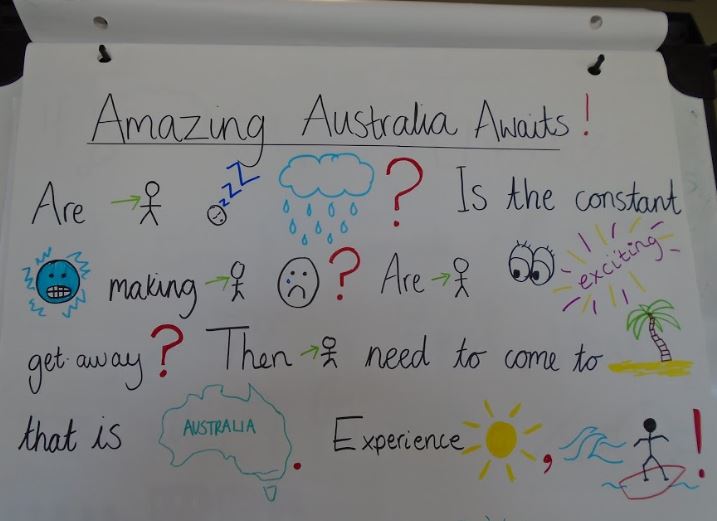 Amazing Australia Awaits!
Are zzz ? Is the constant
making ? Are exciting
get away? Then need to come to
that is AUSTRALIA. Experience , !